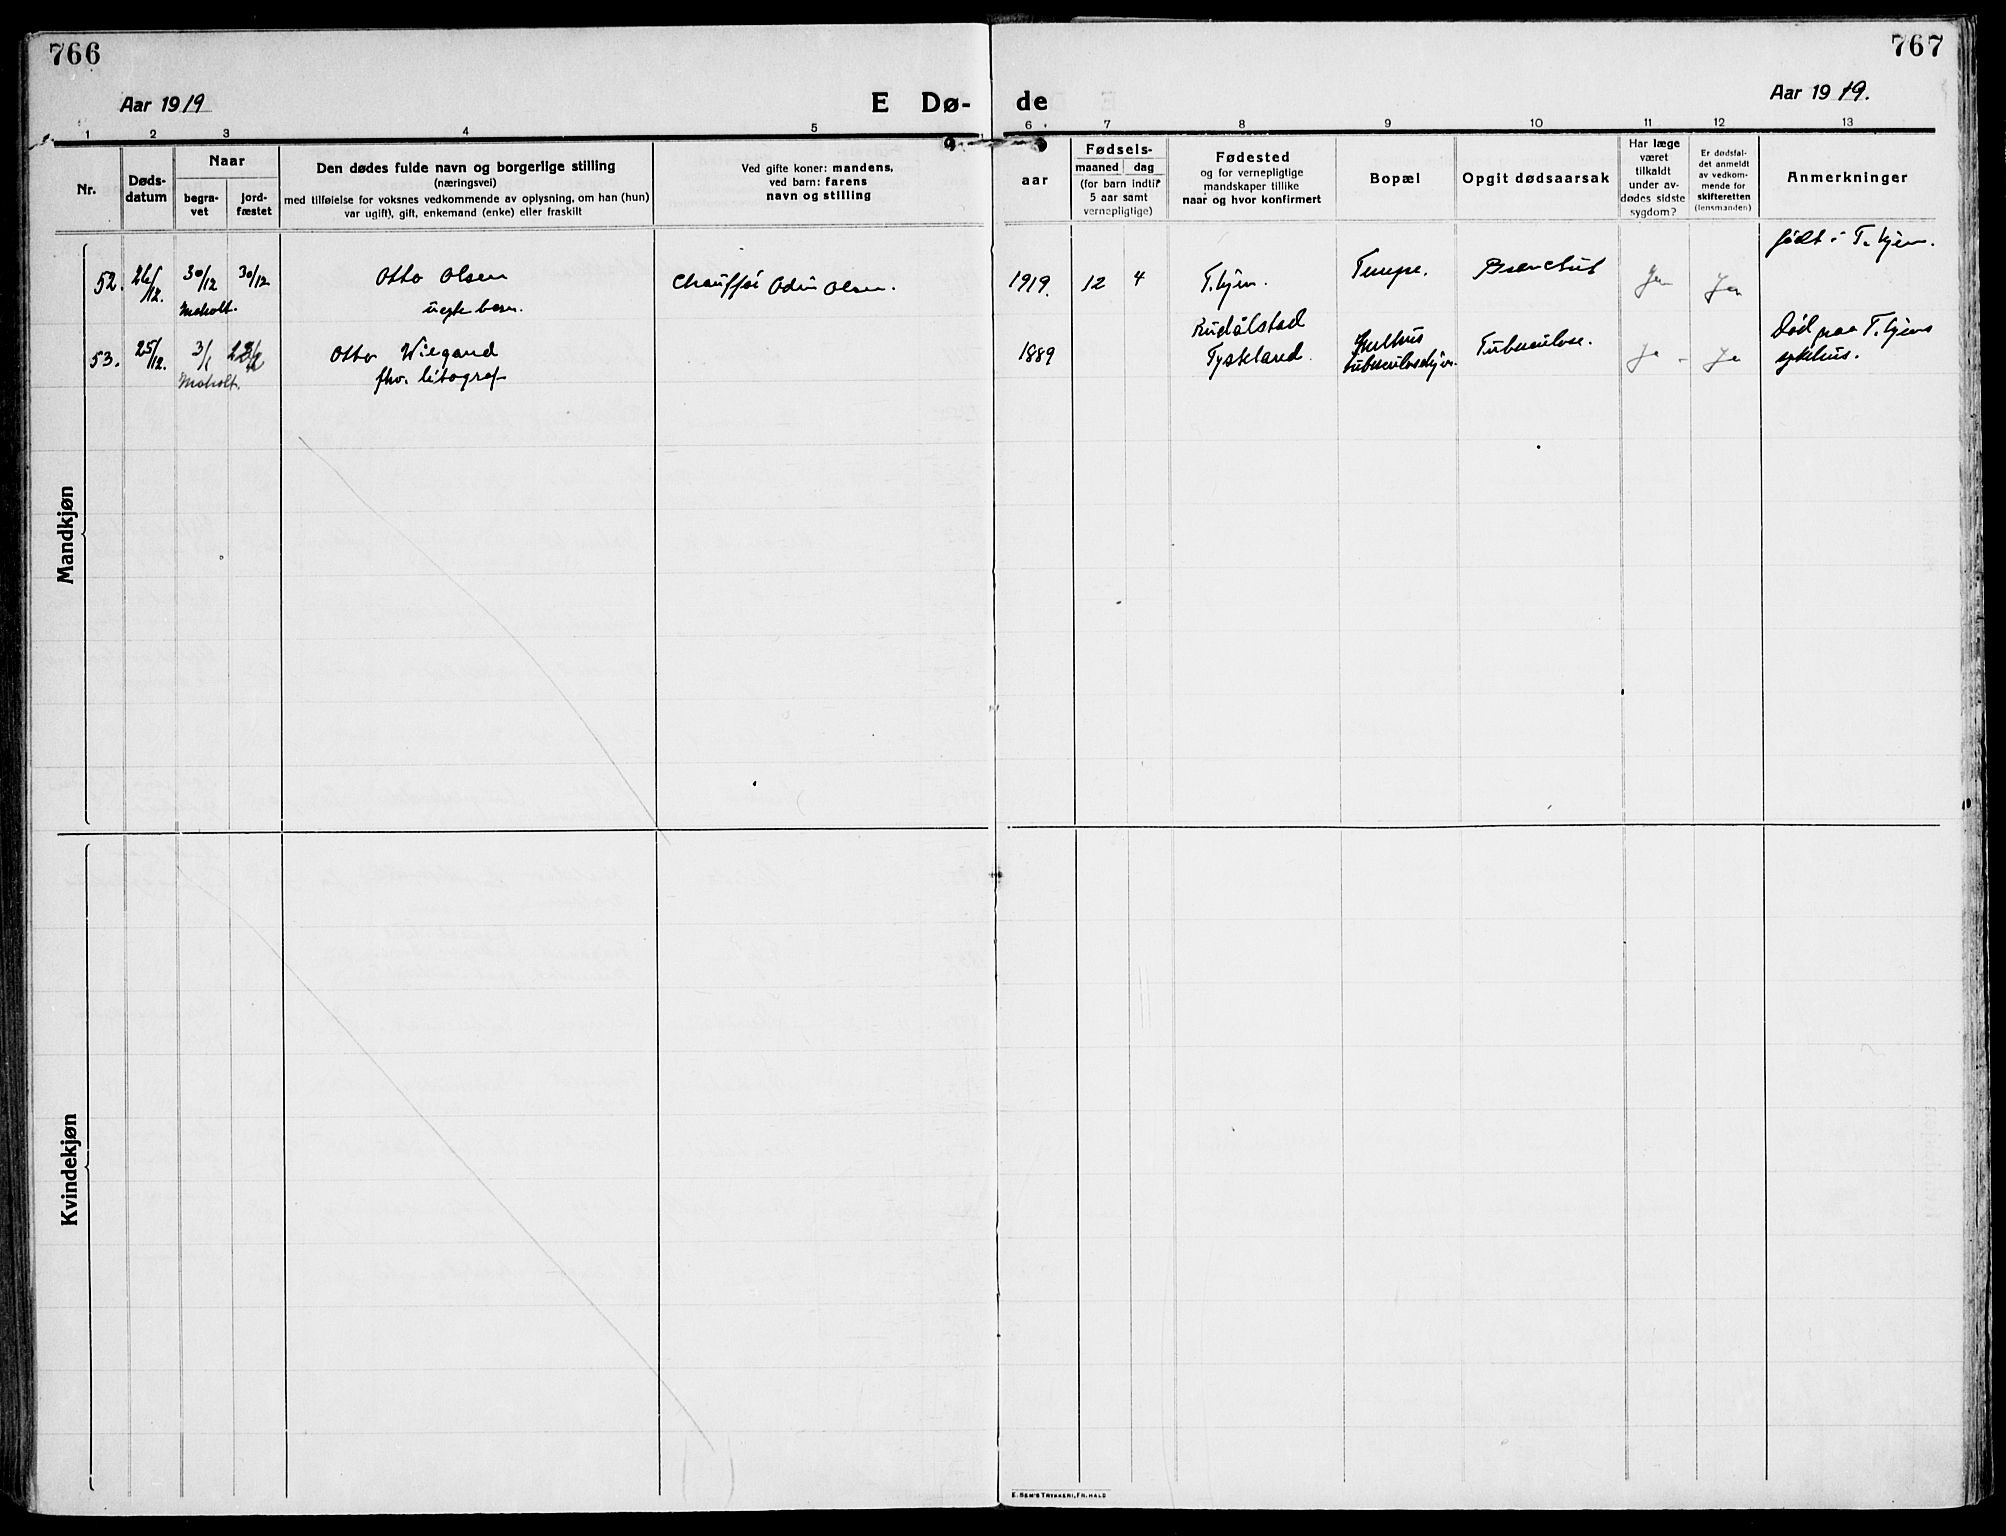 766
767
Aar 1919
E Dø-
de
Aar 1919.
1 2 3 4 5 6 7 8 9 10 11 12 13
Nr.
Døds-
datum
Naar
begra-
vet
jord-
fæstet
Den dødes fulde navn og borgerlige stilling
(næringsvei)
med tilføielse for voksnes vedkommende av oplysning, om han (hun)
var ugift), gift, enkemand (enke) eller fraskilt
Ved gifte koner: mandens,
ved barn: farens
navn og stilling
aar
Fødsels-
maaned dag
(for barn indtil
5 aar samt
vernepligtige)
Fødested
og for vernepligtige
mandskaper tillike
naar og hvor konfirmert
Bopæl
Opgit dødsaarsak
Har læge
været
tilkaldt
under av-
dødes sidste
sygdom?
Er dødsfal-
det anmeldt
av vedkom-
mende for
skifteretten
(lensmanden)
Anmerkninger
Mandkjøn
52. 26/12. 30/12 30/12 Otto Olsen Chauffør Odin Olsen. 1919. 12 4 T.hjem. Tempe. Ja Ja født i T.hjem.
Moholt. uegte barn.
53. 25/12. 3/1 Otto Wiegand 1889 Rudolstad Tuberculose. Ja - Ja Død paa T.hjems
Moholt. fhv. litograf Tyskland. tuberculosehjem. sykehus.
Kvindekjøn
E. SEM'S TRYKKERI, FR.HALD